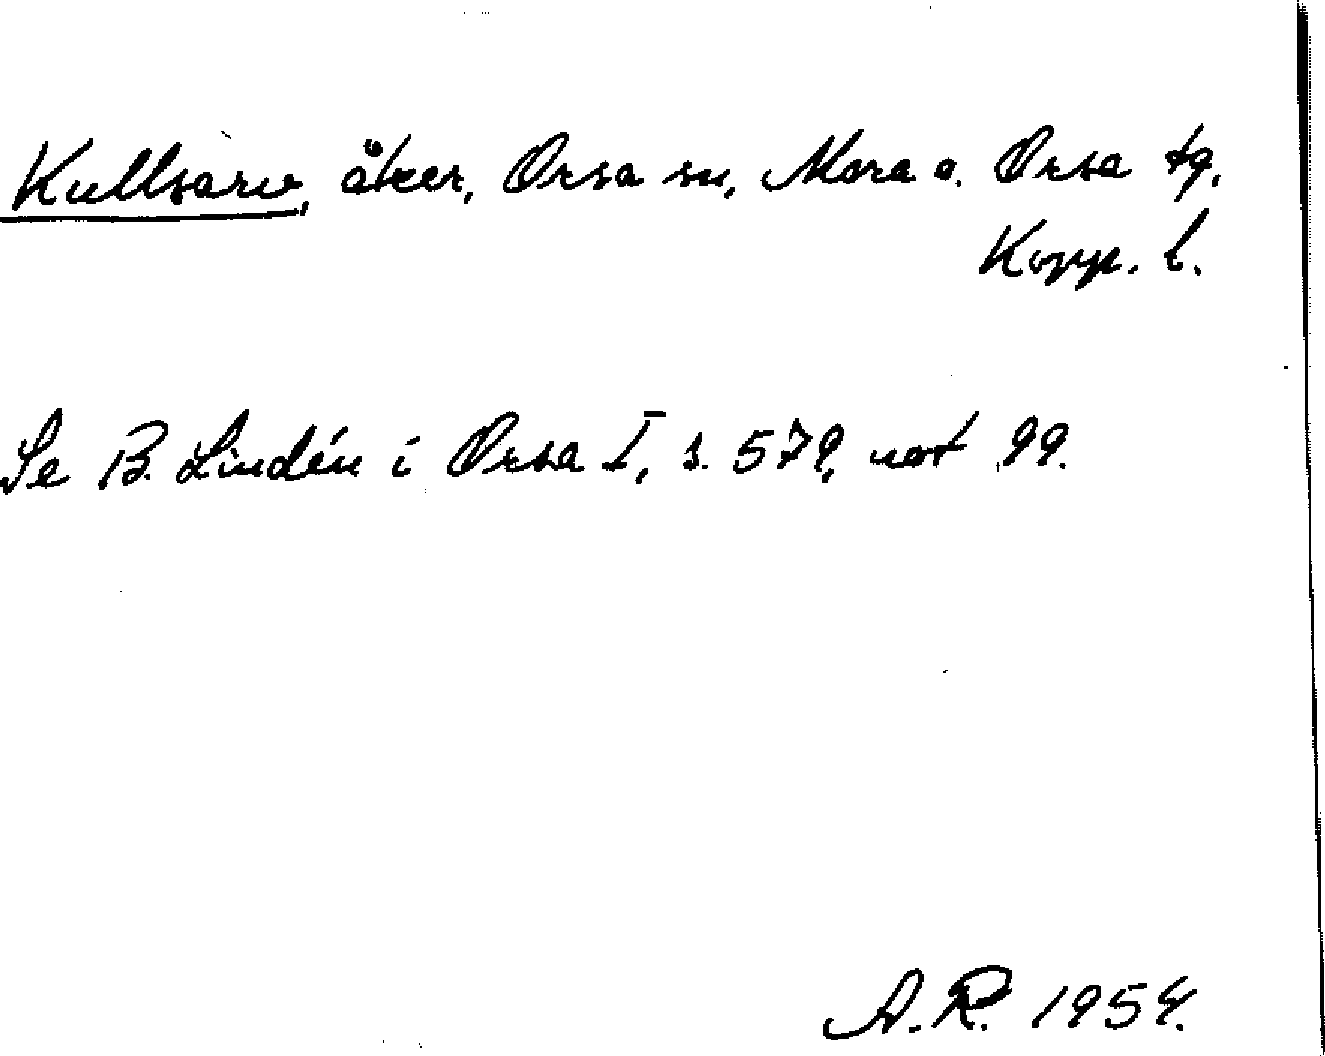 Kullsarv, åker, Orsa sn, Mora o. Orsa tg,
Kopp. l.
Se B. Lindén i Orsa I, s. 579, not 99.
A.R. 1954.